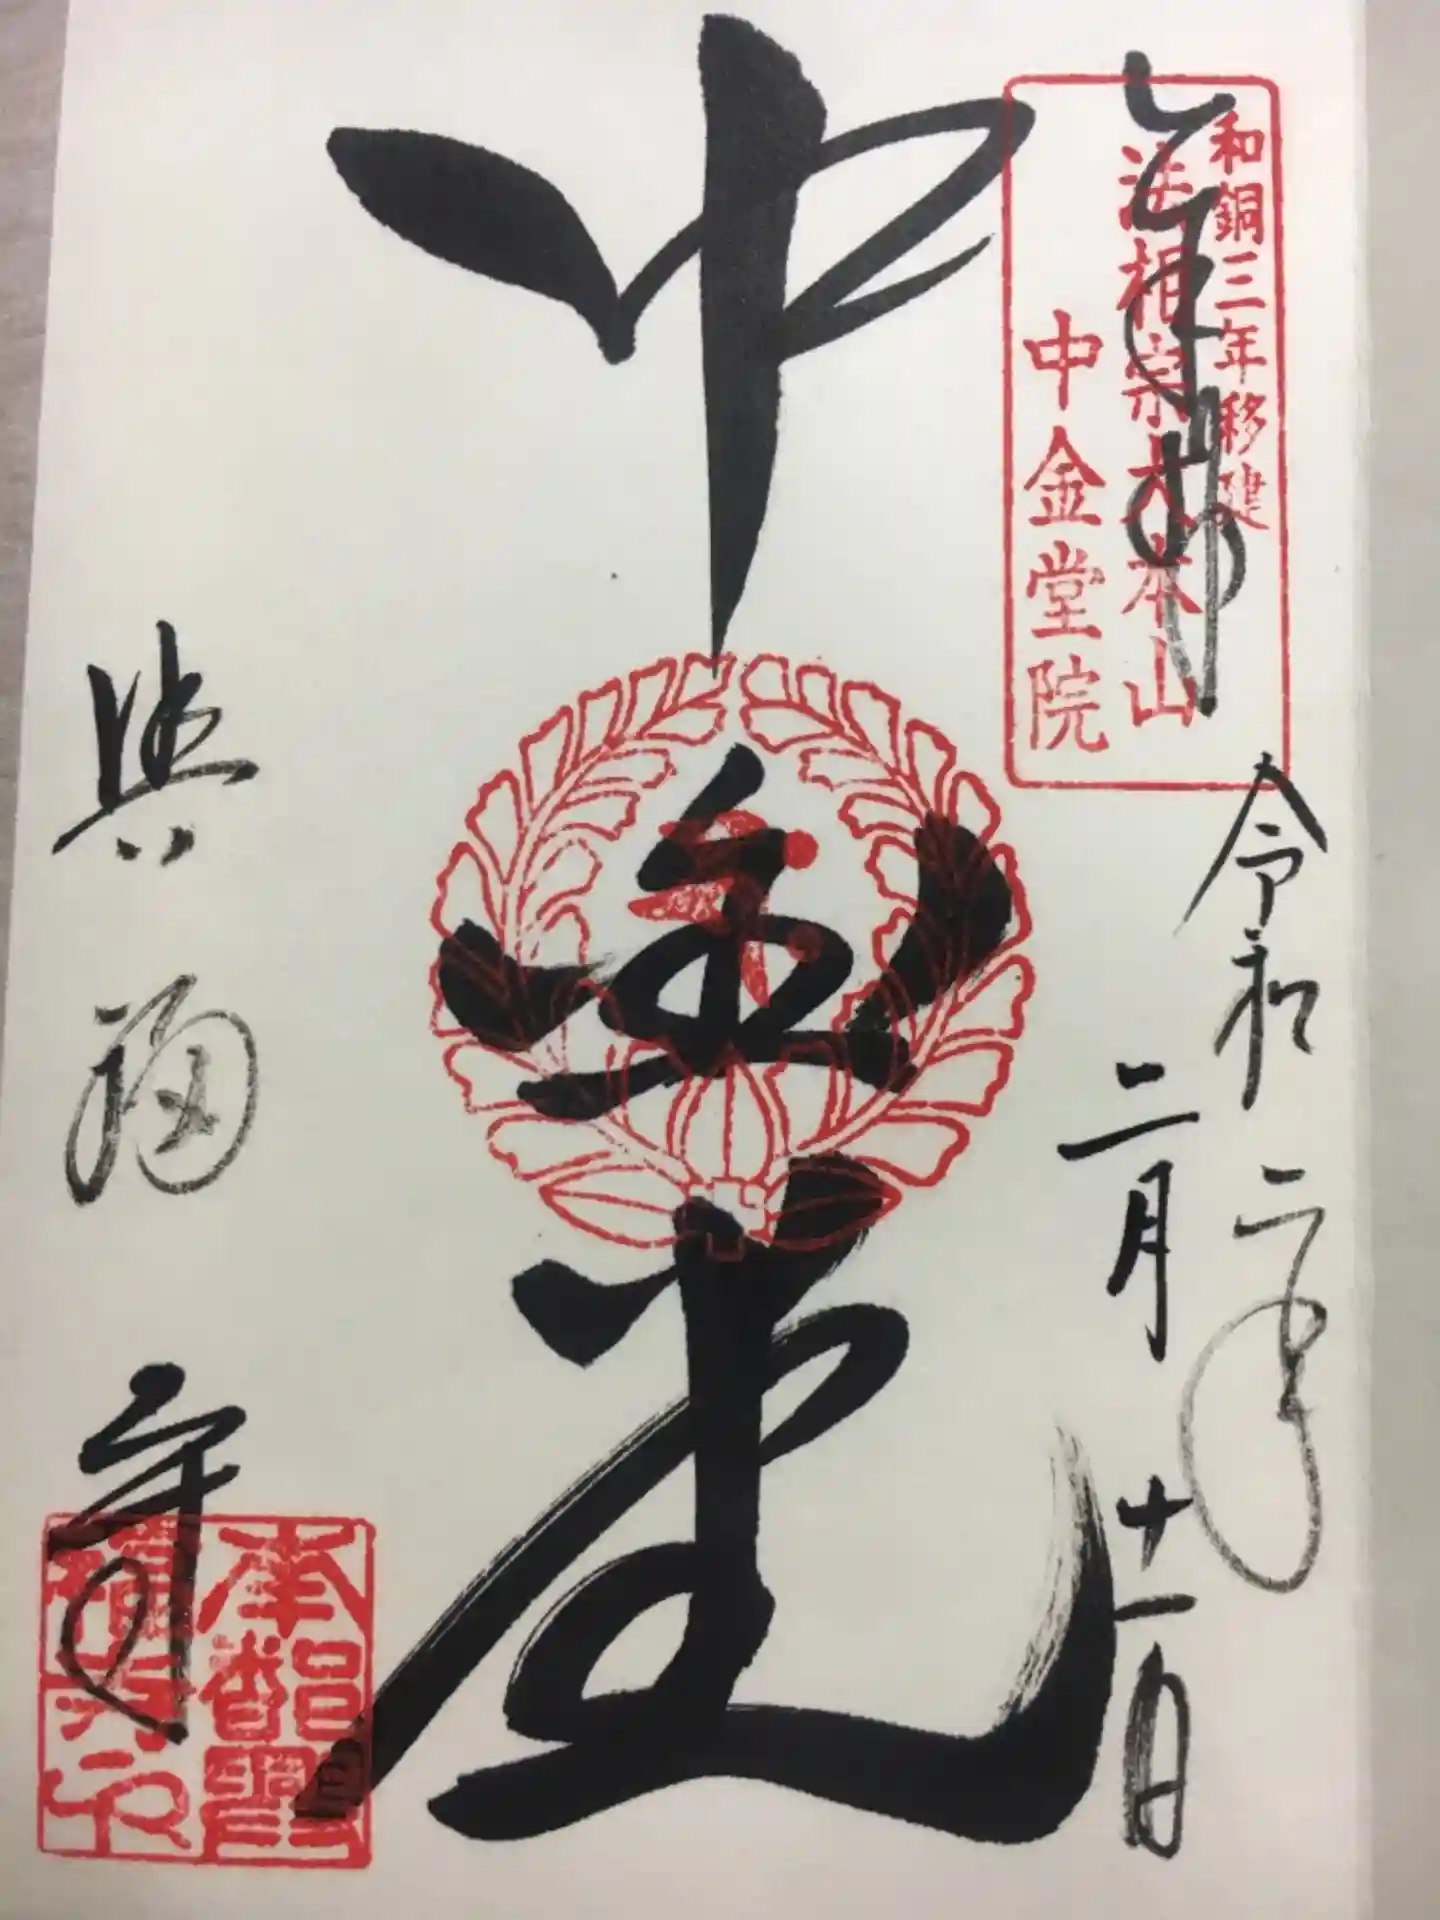 奉拝
和銅三年移建
法相宗大本山
中金堂院
令和二年
二月十一日
中金堂
興福寺